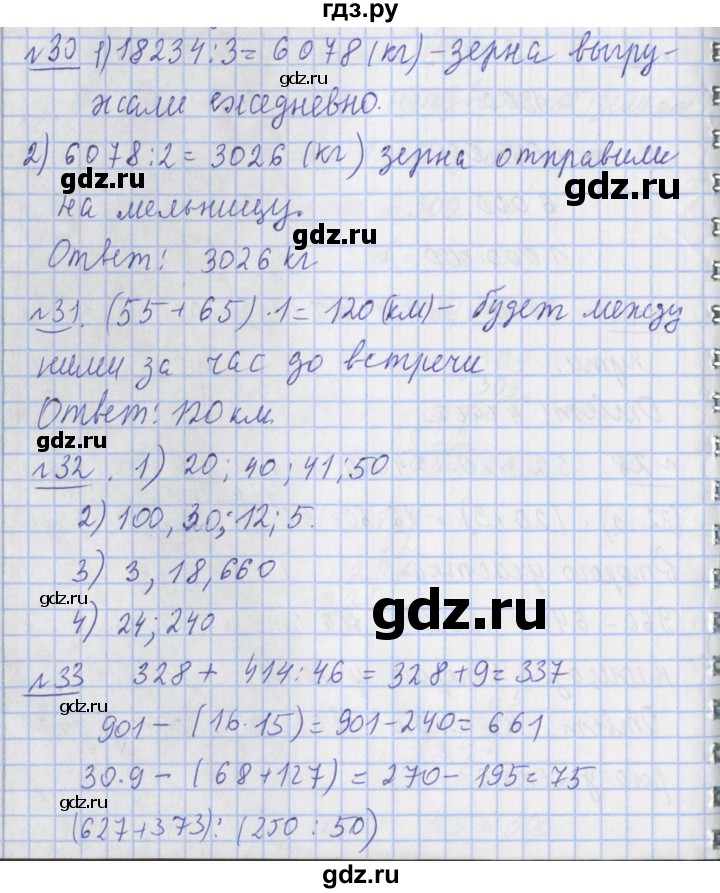 гдз.ру
№30 1) 18234:3= 6078 (кг) - зерна выгру-
жали ежедневно.
gdz.ru
2) 6078:2= 3026 (кг) зерна отправили
gdz.ru
на мельницу.
gdz.ru
Ответ: 3026 кг
№31. (55+65)·1= 120(км) - будет между
ними за час до встречи
gdz.ru
Ответ: 120 км.
№32. 1) 20; 40; 41; 50
gdz.ru
2) 100, 30; 12; 5.
3) 3, 18, 660
gdz.ru
gdz.ru
4) 24; 240
№33 328 + 414:46 = 328+9= 337
gdz.ru
901 - (16·15)= 901-240= 661
30·9 - (68+127) = 270 - 195= 75
gdz.ru
gdz.ru
(627+373): (250:50)
gdz.ru
gdz.ru